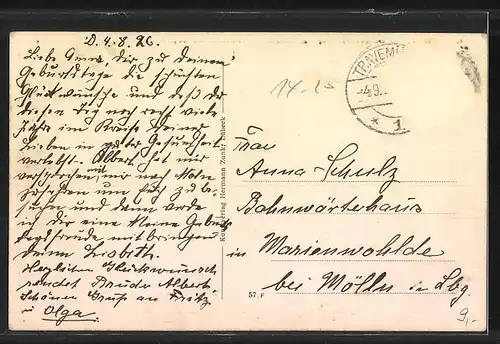 D. 4. 8. 26.
Liebe Anna, dir zu deinem
Geburtstage die schönsten
Glückwünsche und daß du
diesen Tag noch recht viele
Jahre im Kreise deiner
Lieben in guter Gesundheit
verlebst. Albert hat mir
versprochen mit mir nach Möln
zu fahren und Euch zu be-
suchen und dann werde
ich dir eine kleine Geburts-
tagsfreude mit bringen
deine Lisbeth.
Herzlichen Glückwunsch
sendet Bruder Albert
Schönen Gruß an Fritz
u Olga
Kunstverlag Hermann Lübeck
57 F
TRAVEM
4.9.
* 1
14.20
Frau
Anna Schulz
Bahnwärterhaus
in Marienwohlde
bei Mölln in Lbg.
9,-